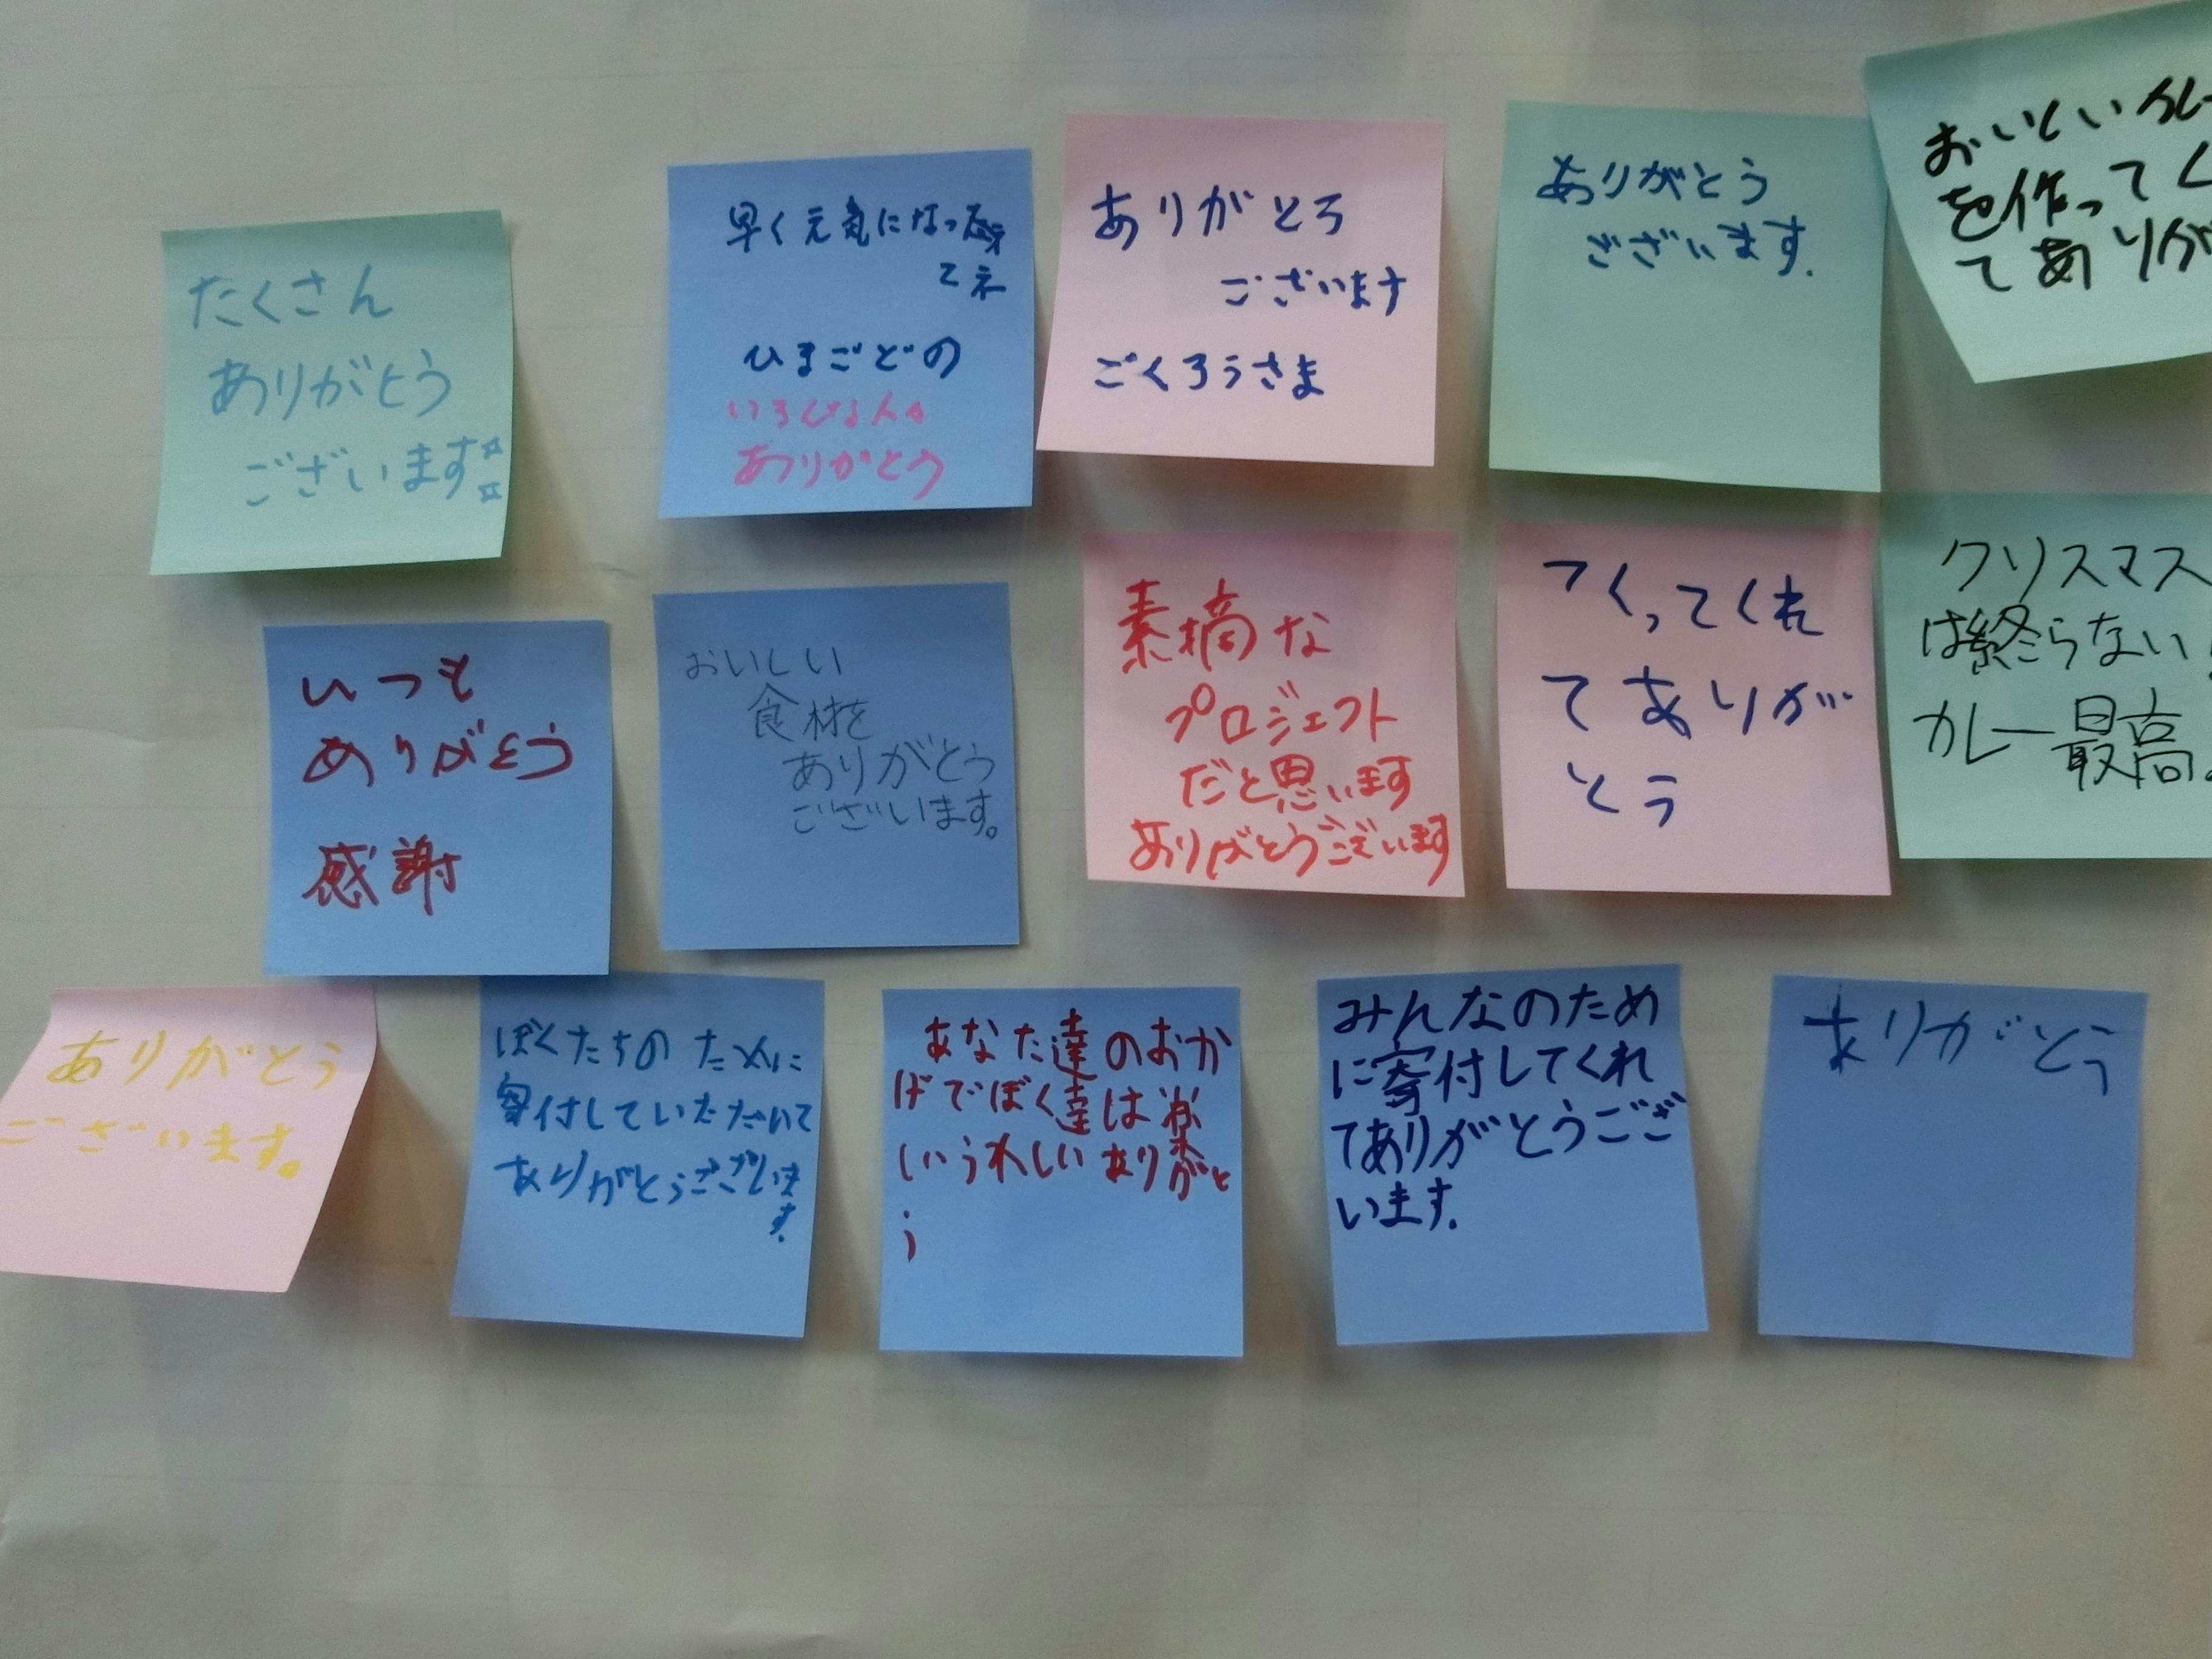 たくさん
ありがとう
ございます
早く元気になっ
てネ
ひまごどの
ありがとう
ありがとろ
ございます
ごくろうさま
ありがとう
ございます.
おいしいカレー
を作ってく
てありが
いつも
ありがとう
感謝
おいしい
食材を
ありがとう
ございます。
素摘な
プロジェクト
だと思います
ありがとうございます
つくってくれ
てありが
とう
クリスマス
は終らない!
カレー最高。
ありがとう
ございます。
ぼくたちの ために
寄付していただいて
ありがとうございま
す.
あなた達のおか
げでぼく達は楽
しいうれしい ありがと
う
みんなのため
に寄付してくれ
てありがとうござ
います.
ありがとう